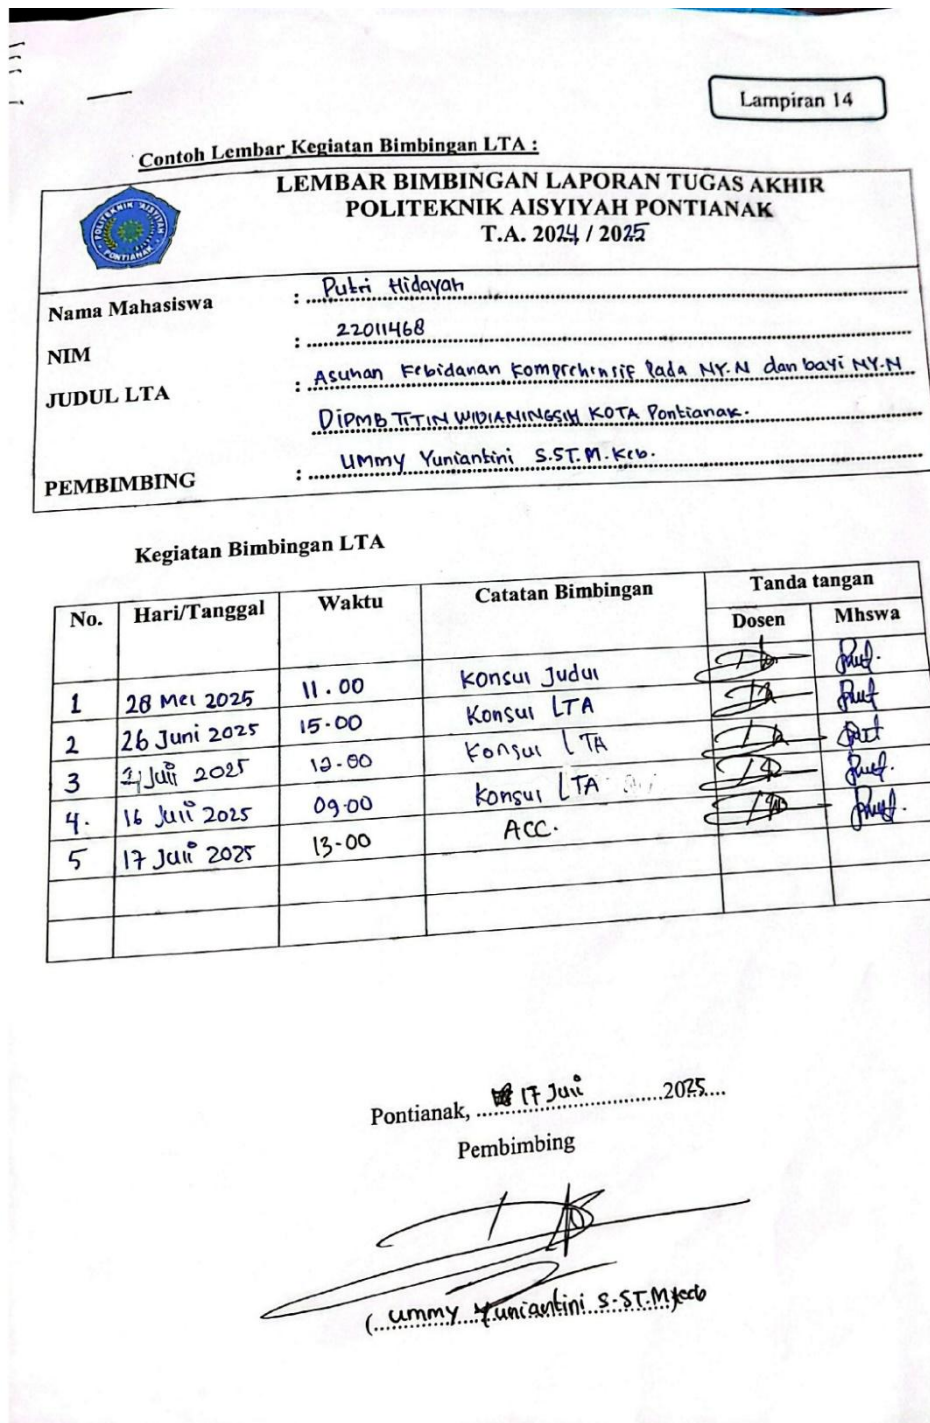 Lampiran 14
Contoh Lembar Kegiatan Bimbingan LTA :
LEMBAR BIMBINGAN LAPORAN TUGAS AKHIR
POLITEKNIK AISYIYAH PONTIANAK
T.A. 2024 / 2025
POLITEKNIK 'AISYIYAH
PONTIANAK
Nama Mahasiswa : Putri Hidayah
NIM : 22011468
JUDUL LTA : Asuhan Kebidanan Komprehensif Pada NY.N dan bayi NY.N
DiPMB TITIN WIDIANINGSIH KOTA Pontianak.
PEMBIMBING : Ummy Yuniantini S.ST.M.Keb.
Kegiatan Bimbingan LTA
No. Hari/Tanggal Waktu Catatan Bimbingan Tanda tangan
Dosen Mhswa
1 28 Mei 2025 11.00 Konsul Judul
2 26 Juni 2025 15.00 Konsul LTA
3 Juli 2025 Konsul LTA
4. 16 Juli 2025 09.00 Konsul LTA
5 17 Juli 2025 13.00 ACC.
Pontianak, 17 Juli 2025
Pembimbing
(Ummy Yuniantini S.ST.M.Keb